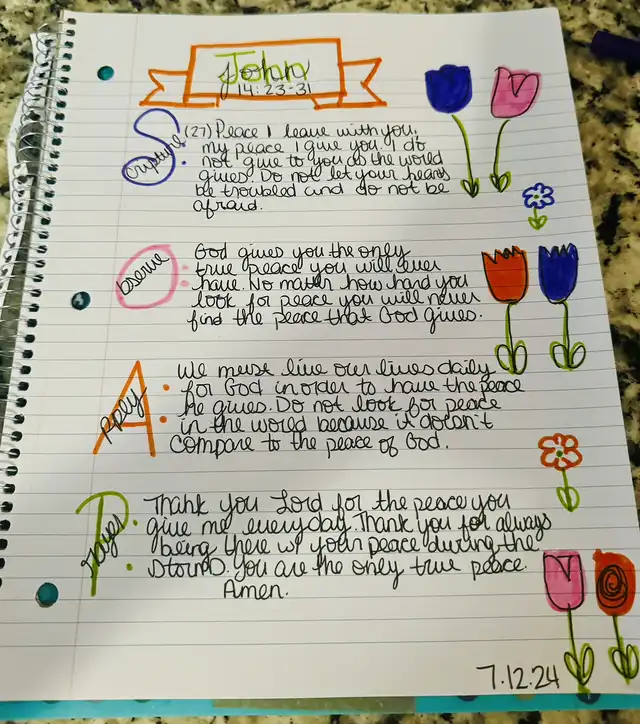 John
14:23-31
Scripture: (27) Peace I leave with you,
my peace I give you. I do
not give to you as the world
gives. Do not let your hearts
be troubled and do not be
afraid.
Observe: God gives you the only
true peace you will ever
have. No matter how hard you
look for peace you will never
find the peace that God gives.
Apply: We must live our lives daily
for God in order to have the peace
he gives. Do not look for peace
in the world because it doesn't
compare to the peace of God.
Prayer: Thank you Lord for the peace you
give me everyday. Thank you for always
being there w/ your peace during the
storms. You are the only true peace.
Amen.
7.12.24